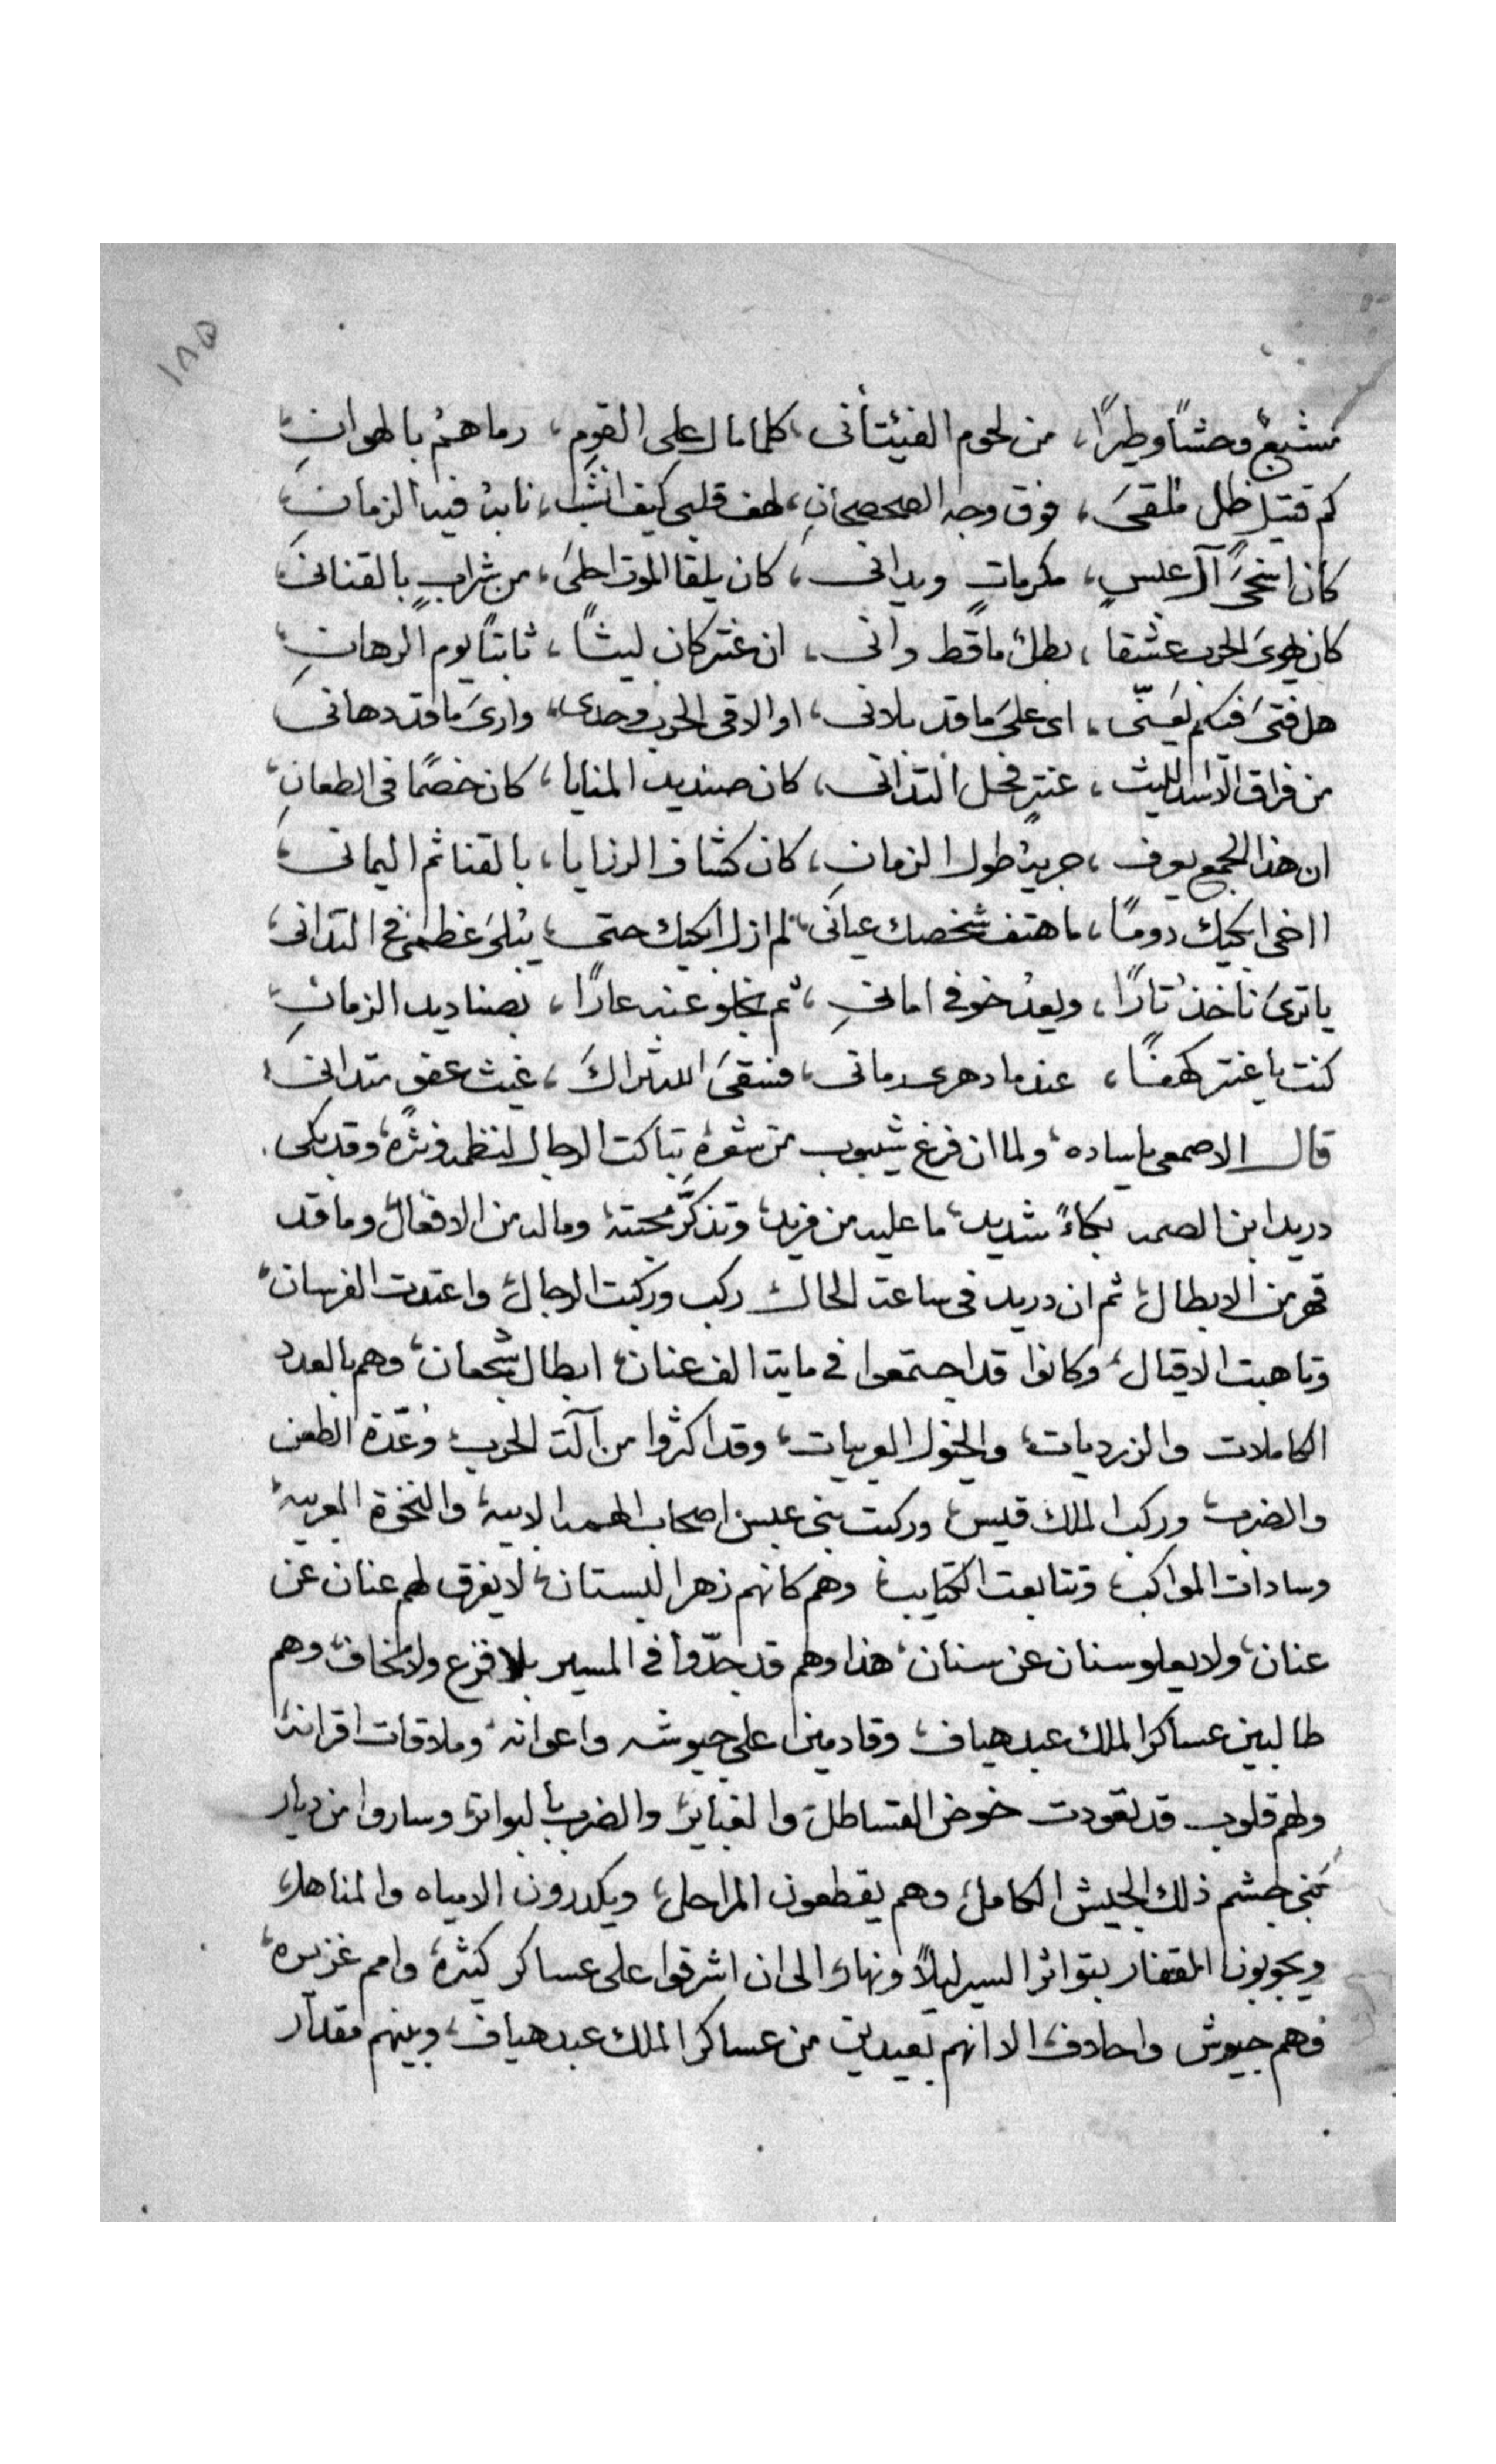 ١٨٥
مشبعٌ وحشاً وطيراً، من لحوم الفئتأنى، كلما مال على القومِ، رماهمُ بالهوانِ
كم قتيلٍ ظل ملقىَ، فوق وجه الصحصحانِ، لهف قلبى كيف انشب، نابهُ فيه الزمانِ
كان اخىَ آل عبسٍ، مكرماتٍ ويدانى، كان يلقا الموت احلىَ، من شرابٍ بالقنانى
كان يهوىَ الحرب عشقا، بطلٌ ماقط وانى، ان عنتر كان ليثاً، ثابتاً يوم الرهانِ
هل فتىَ فيكم يعنّى، اى علىَ ماقد بلانى، او الاقى الحرب وحدى، وارىَ ماقد دهانى
من فراق الاسد الليث، عنترٍ فحل التدانى، كان صنديد المنايا، كان خصمًا فى الطعانِ
ان هذا الجمع يعرف، حربهُ طول الزمانِ، كان كشاف الرزايا، بالقنا ثم اليمانى
ااخى ابكيك دومًا، ماهتف شخصك عيانى، لم ازل ابكيك حتى، يبلىَ عظمى فى التدانى
ياترىَ ناخذ تارًا، ويعدُ خوفى امانى، ثم نجلو عنه عارًا، بصناديد الزمانِ
كنت ياعنتر كهفًا، عندما دهرى رمانى، فسقىَ الله ثراكَ، غيث عفوٍ متدانى
قال الاصمعى ياساده، ولما ان فرغ شيبوب من شعرهُ تباكت الرجال لنظمه ونثرهُ، وقد بكى
دريد ابن الصمه بكاءً شديد، ما عليه من مزيد، وتذكَّر محبتهُ وماله من الافعالْ وماقد
قهر من الابطال، ثم ان دريد فى ساعة الحال ركب وركبت الرجال، واعتدت الفرسان
وتاهبت الاقيال، وكانوا قد اجتمعوا فى ماية الف عنان، ابطال شجعان، وهم بالعدد
الكاملات والزرديات، والخيول العربيات، وقد اكثروا من آلت الحرب، وعّدة الطعن
والضرب، وركب الملك قيس، وركبت بنى عبس اصحاب الهمه الابيه، والنخوة العربيه
وسادات المواكب، وتتابعت الكتايب، وهم كانهم زهر البستان، لايفرق لهم عنان عن
عنان، ولايعلو سنان عن سنان، هذا وهم قد جدّوا فى المسير بلا فزع ولا مخاف، وهم
طالبين عساكر الملك عبد هياف، وقادمين على جيوشه واعوانه، وملاقات اقرانهُ
ولهم قلوب قد تعودت خوض القساطل، والغباير، والضرب بالبواتر، وساروا من ديار
بنى جشم ذلك الجيش الكامل، وهم يقطعون المراحل، ويكدرون الامياه والمناهل
ويجوبون القفار بتواتر السير ليلاً ونهار، الى ان اشرفوا على عساكر كثيرهُ، وامم غزيره
وهم جيوش واحادف، الا انهم بعيدين من عساكر الملك عبد هياف، وبينهم مقدار